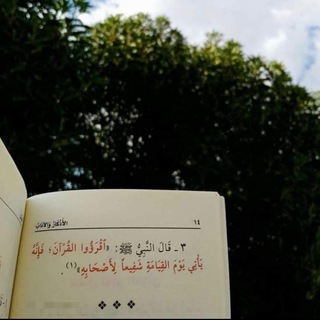 الأذكار والآداب ١٤
٣ ـ قَالَ النَّبِيُّ ﷺ: «اقْرَؤُوا القُرْآنَ؛ فَإِنَّهُ
يَأْتِي يَوْمَ القِيَامَةِ شَفِيعاً لِأَصْحَابِهِ»(١).